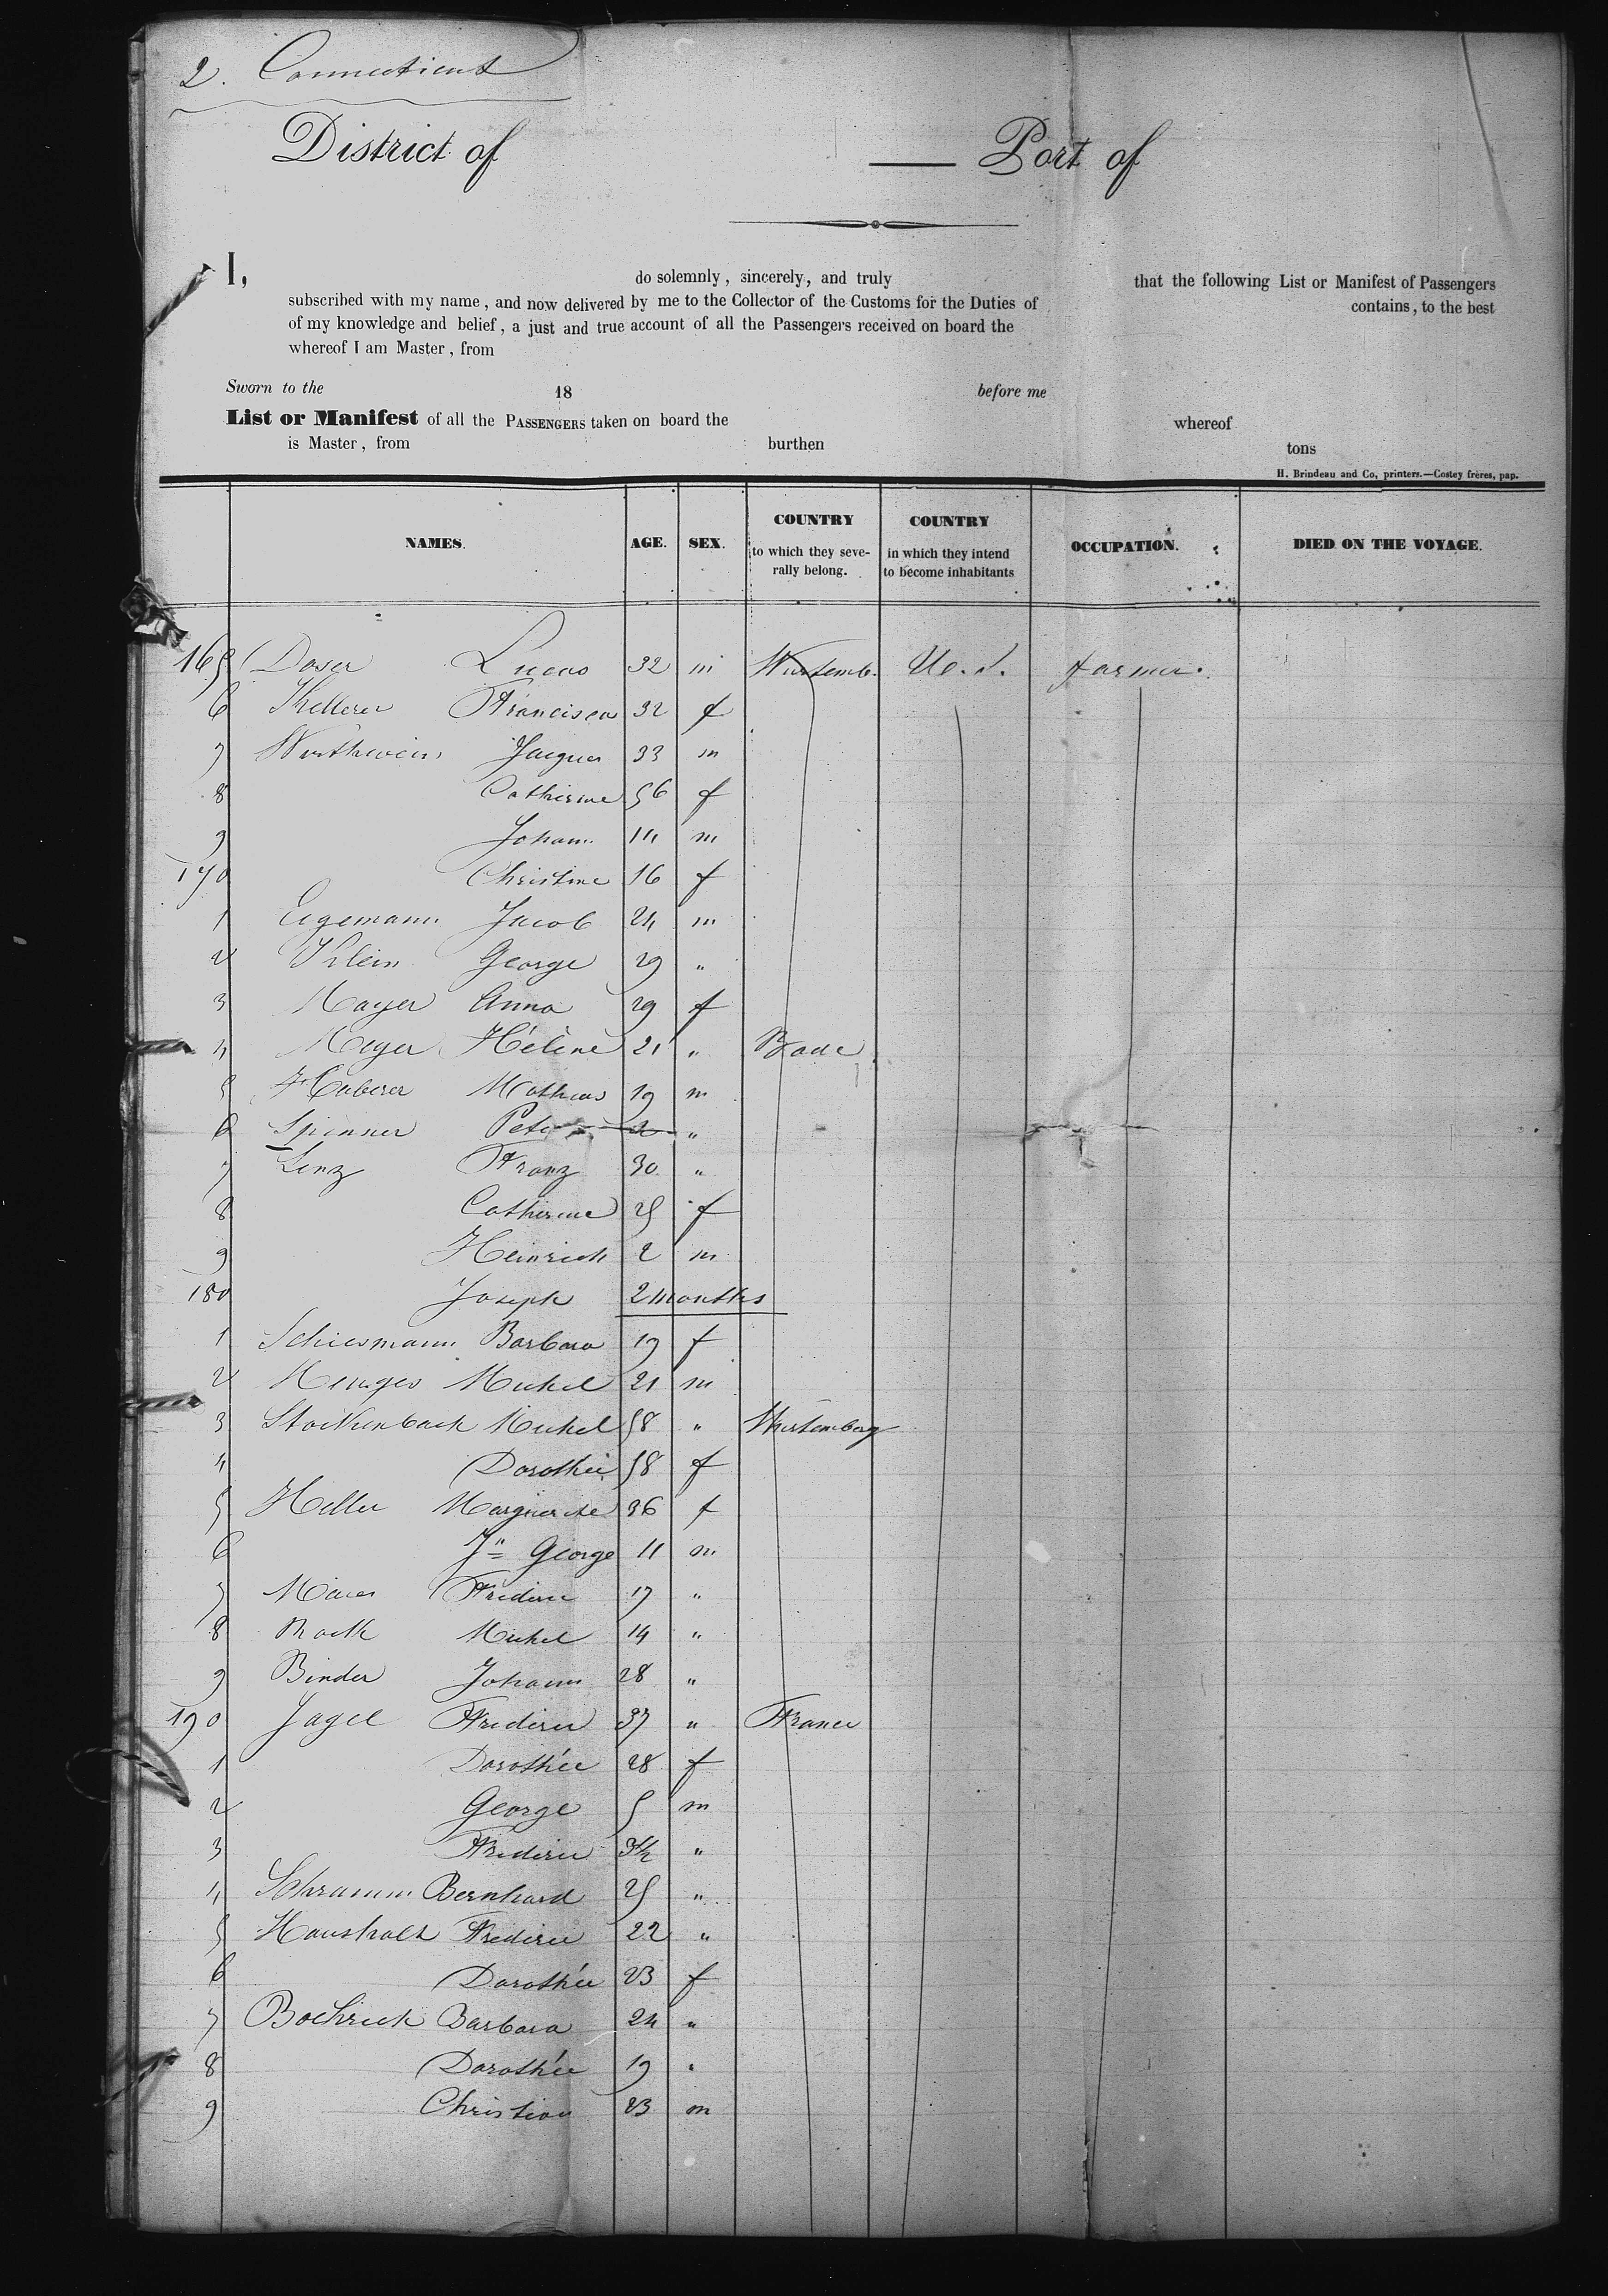 2. Connecticut
District of — Port of
I, do solemnly, sincerely, and truly that the following List or Manifest of Passengers
subscribed with my name, and now delivered by me to the Collector of the Customs for the Duties of contains, to the best
of my knowledge and belief, a just and true account of all the Passengers received on board the
whereof I am Master, from
Sworn to the 18 before me
List or Manifest of all the PASSENGERS taken on board the whereof
is Master, from burthen tons
H. Brindeau and Co, printers.—Costey frères, pap.
NAMES. AGE. SEX. COUNTRY to which they severally belong. COUNTRY in which they intend to become inhabitants OCCUPATION. DIED ON THE VOYAGE.
165 Doser Lucas 32 m Wurtemb. U.S. farmer.
6 Kellerer Francisca 32 f
7 Jacques 33 m
8 Catherine 56 f
9 Johann 14 m
170 Christine 16 f
1 Eegemann Jacob 24 m
2 Klein George 29 "
3 Mayer Anna 29 f
4 Meyer Hélène 21 " Bade
5 Haberer Mathias 19 m
6 Spinner Peter 2 "
7 Lenz Franz 30 "
8 Catherine 25 f
9 Heinrich 2 m
180 Joseph 2 months
1 Schiesmann Barbara 19 f
2 Menges Michel 21 m
3 Stockenback Michel 58 " Wurtemberg
4 Dorothée 58 f
5 Heller Marguerite 36 f
6 Jn George 11 m
7 Frederic 17 "
8 Michel 14 "
9 Binder Johann 28 "
190 Jagel Frederic 37 " France
1 Dorothée 28 f
2 George 5 m
3 Frederic 3½ "
4 Schramm Bernhard 25 "
5 Haushalt Frederic 22 "
6 Dorothée 23 f
7 Bochreck Barbara 24 "
8 Dorothée 19 "
9 Christian 23 m